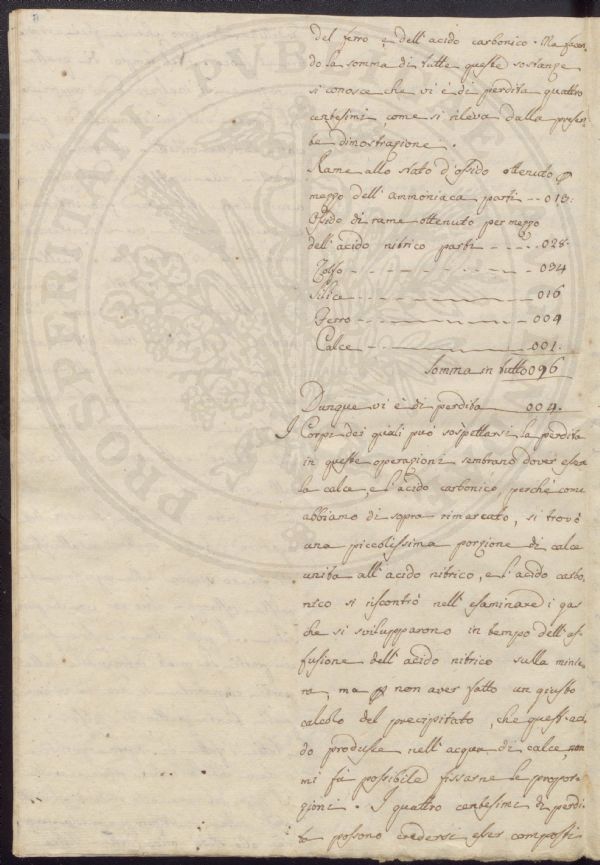 del ferro, e dell'acido carbonico. Ma facen-
do la somma di tutte queste sostanze
si conosce che vi è di perdita quattro
centesimi come si rileva dalla presen-
te dimostrazione.
Rame allo stato d'ossido ottenuto p
mezzo dell'ammoniaca parti -- 013:
Ossido di rame ottenuto per mezzo
dell'acido nitrico parti ---- 028.
Zolfo --------- 034
Silice --------- 016
Ferro --------- 004
Calce --------- 001.
Somma in tutto 096
Dunque vi è di perdita 004.
I Corpi dei quali può sospettarsi la perdita
in queste operazioni sembrano dover esser
la calce, e l'acido carbonico, perché come
abbiamo di sopra rimarcato, si trovò
una piccolissima porzione di calce
unita all'acido nitrico, e l'acido carbo-
nico si riscontrò nell'esaminare i gas
che si svilupparono in tempo dell'af-
fusione dell'acido nitrico sulla minie-
ra, ma p non aver fatto un giusto
calcolo del precipitato, che quest'aci-
do produsse nell'acqua di calce, non
mi fu possibile fissarne le propor-
zioni. I quattro centesimi di perdi-
ta possono credersi esser composti
PROSPERITATI PUBLICAE